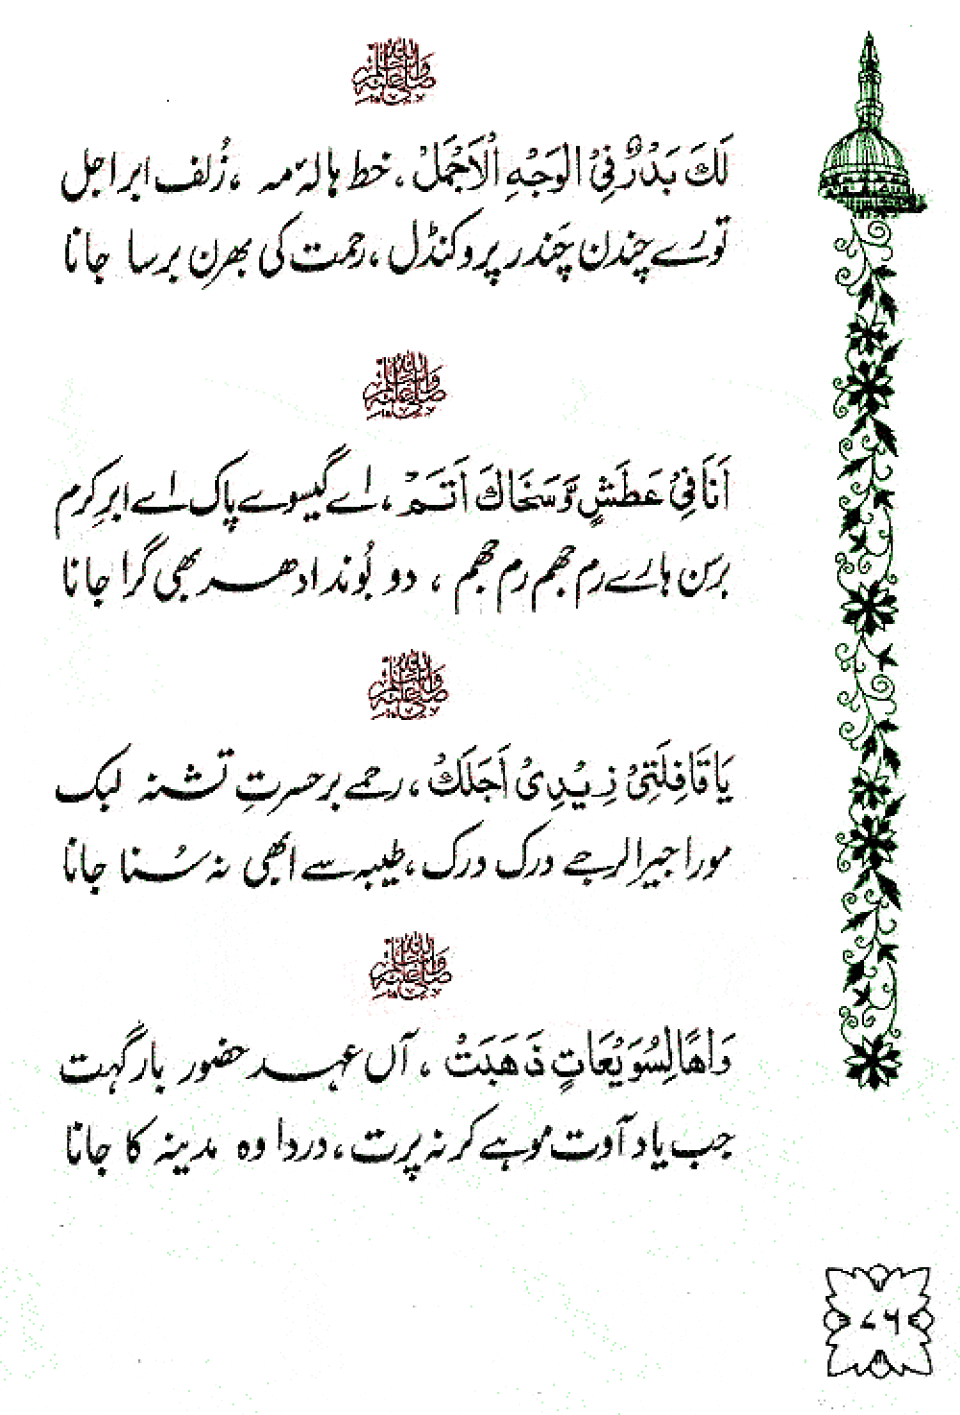 صلی اللہ علیہ وسلم
لَكَ بَدْرٌ فِیْ الْوَجْهِ الْاَجْمَلْ، خط ہالۂ مہ، زُلف ابر اجل
تورے چندن چَندر پروکنڈل، رحمت کی بھرن برسا جانا
صلی اللہ علیہ وسلم
اَنَا فِیْ عَطَشٍ وَّسَخَاكَ اَتَمْ، اے گیسوے پاک اے ابرِ کرم
برسن ہارے رم جھم رم جھم، دو بُوند ادھر بھی گرا جانا
صلی اللہ علیہ وسلم
یَا قَافِلَتِیْ زِیْدِیْ اَجَلَكْ، رحمے بر حسرتِ تشنہ لبک
مورا جیرا لرجے درک درک، طیبہ سے ابھی نہ سُنا جانا
صلی اللہ علیہ وسلم
وَاهًا لِسُوَیْعَاتٍ ذَهَبَتْ، آں عہد حضور بارگہت
جب یاد آوت موہے کر نہ پرت، دردا وہ مدینہ کا جانا
۷۶